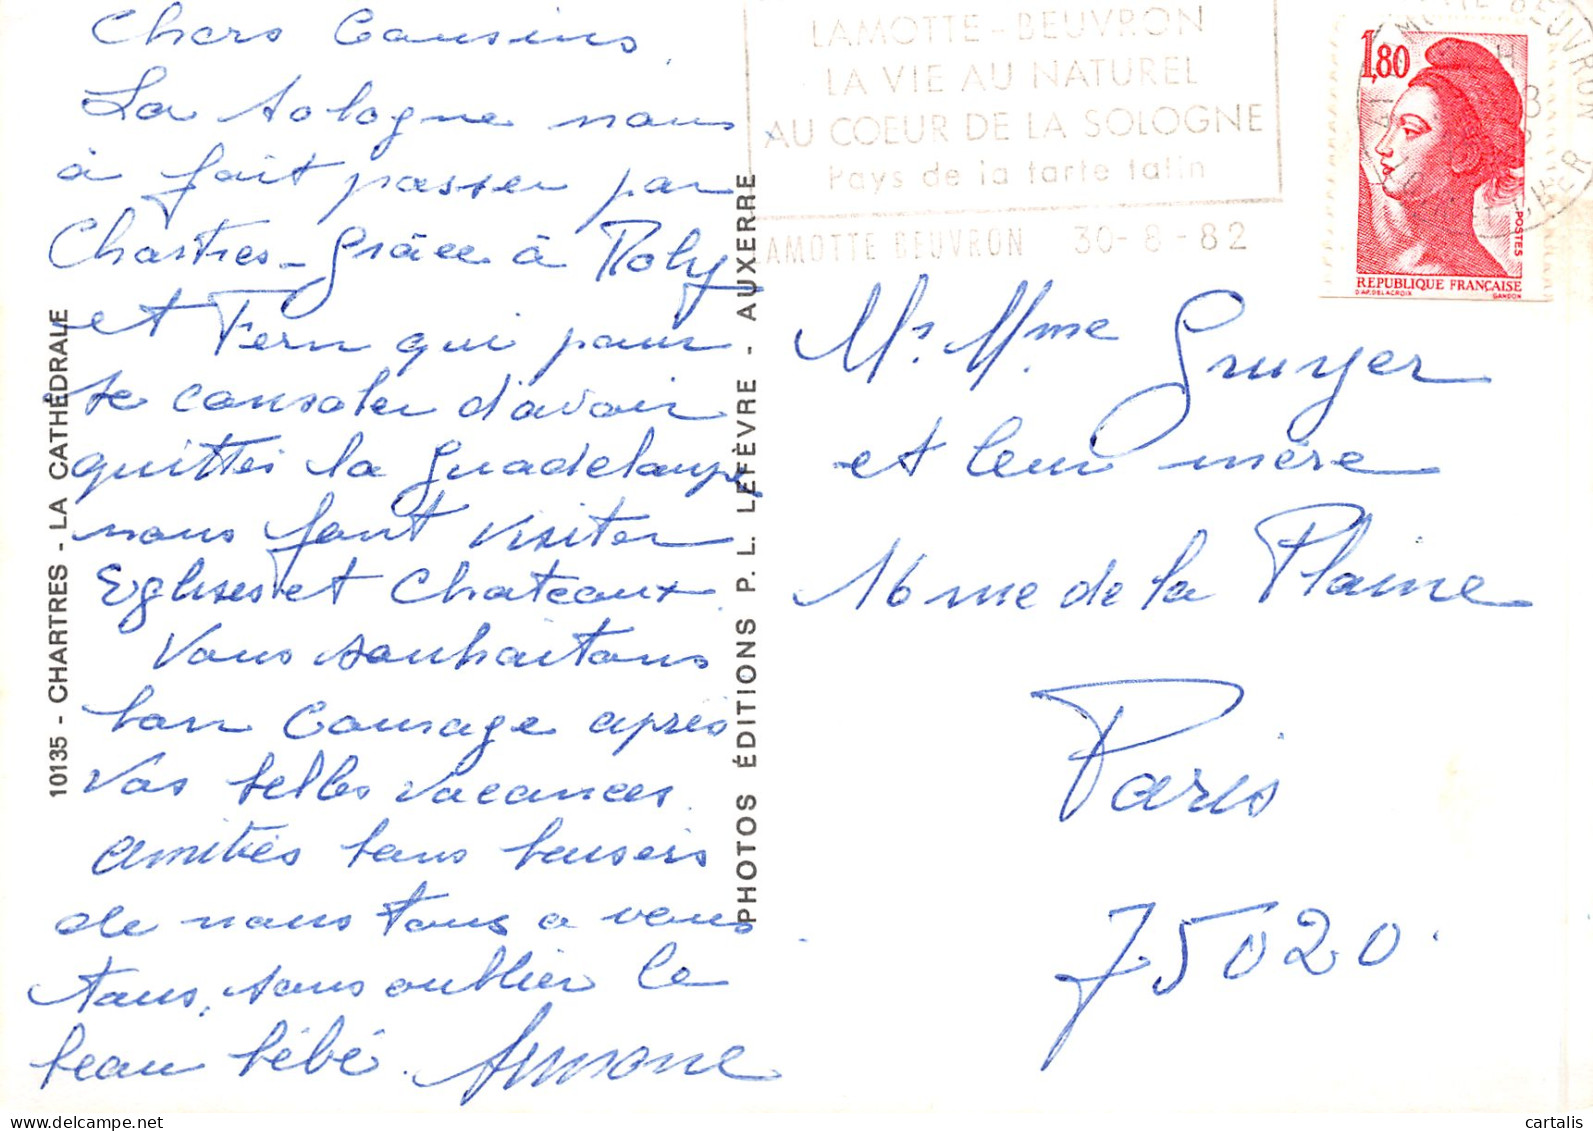 Chers Cousins
La Sologne nous
a fait passer par
Chartres - Grâce à Roby
et Fern qui pour
se consoler d'avoir
quittés la Guadeloupe
nous font visiter
Eglises et Chateaux
Vous souhaitons
bon Courage après
vos belles vacances.
Amitiés bons baisers
de nous tous a vous
tous, sans oublier le
beau bébé.
10135 - CHARTRES - LA CATHÉDRALE
PHOTOS ÉDITIONS P. L. LEFÈVRE - AUXERRE
LAMOTTE-BEUVRON
LA VIE AU NATUREL
AU COEUR DE LA SOLOGNE
Pays de la tarte tatin
LAMOTTE BEUVRON 30-8-82
1,80
POSTES
REPUBLIQUE FRANÇAISE
D'AP. DELACROIX GANDON
Mr. Mme Gruyer
et leur mère
16 rue de la Plaine
Paris
75020.
cartalis.com